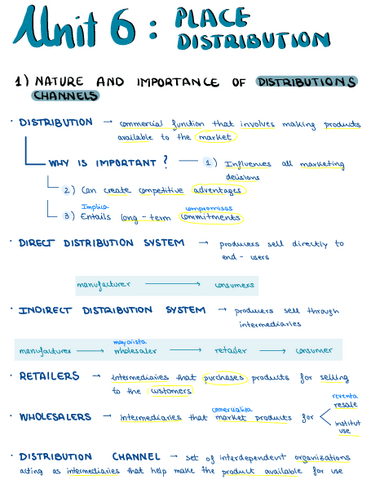 Unit 6 : PLACE
DISTRIBUTION
1) NATURE AND IMPORTANCE OF DISTRIBUTIONS
CHANNELS
· DISTRIBUTION → commercial function that involves making products
available to the market
WHY IS IMPORTANT ? — 1) Influences all marketing
decisions
2) Can create competitive advantages
Implica compromisos
3) Entails long-term commitments
· DIRECT DISTRIBUTION SYSTEM → producers sell directly to
end-users
manufacturer → consumers
· INDIRECT DISTRIBUTION SYSTEM → producers sell through
intermediaries
mayorista
manufacturer → wholesaler → retailer → consumer
· RETAILERS → intermediaries that purchases products for selling
to the customers
comercializa reventa
· WHOLESALERS → intermediaries that market products for resale
institut
use
· DISTRIBUTION CHANNEL → set of interdependent organizations
acting as intermediaries that help make the product available for use